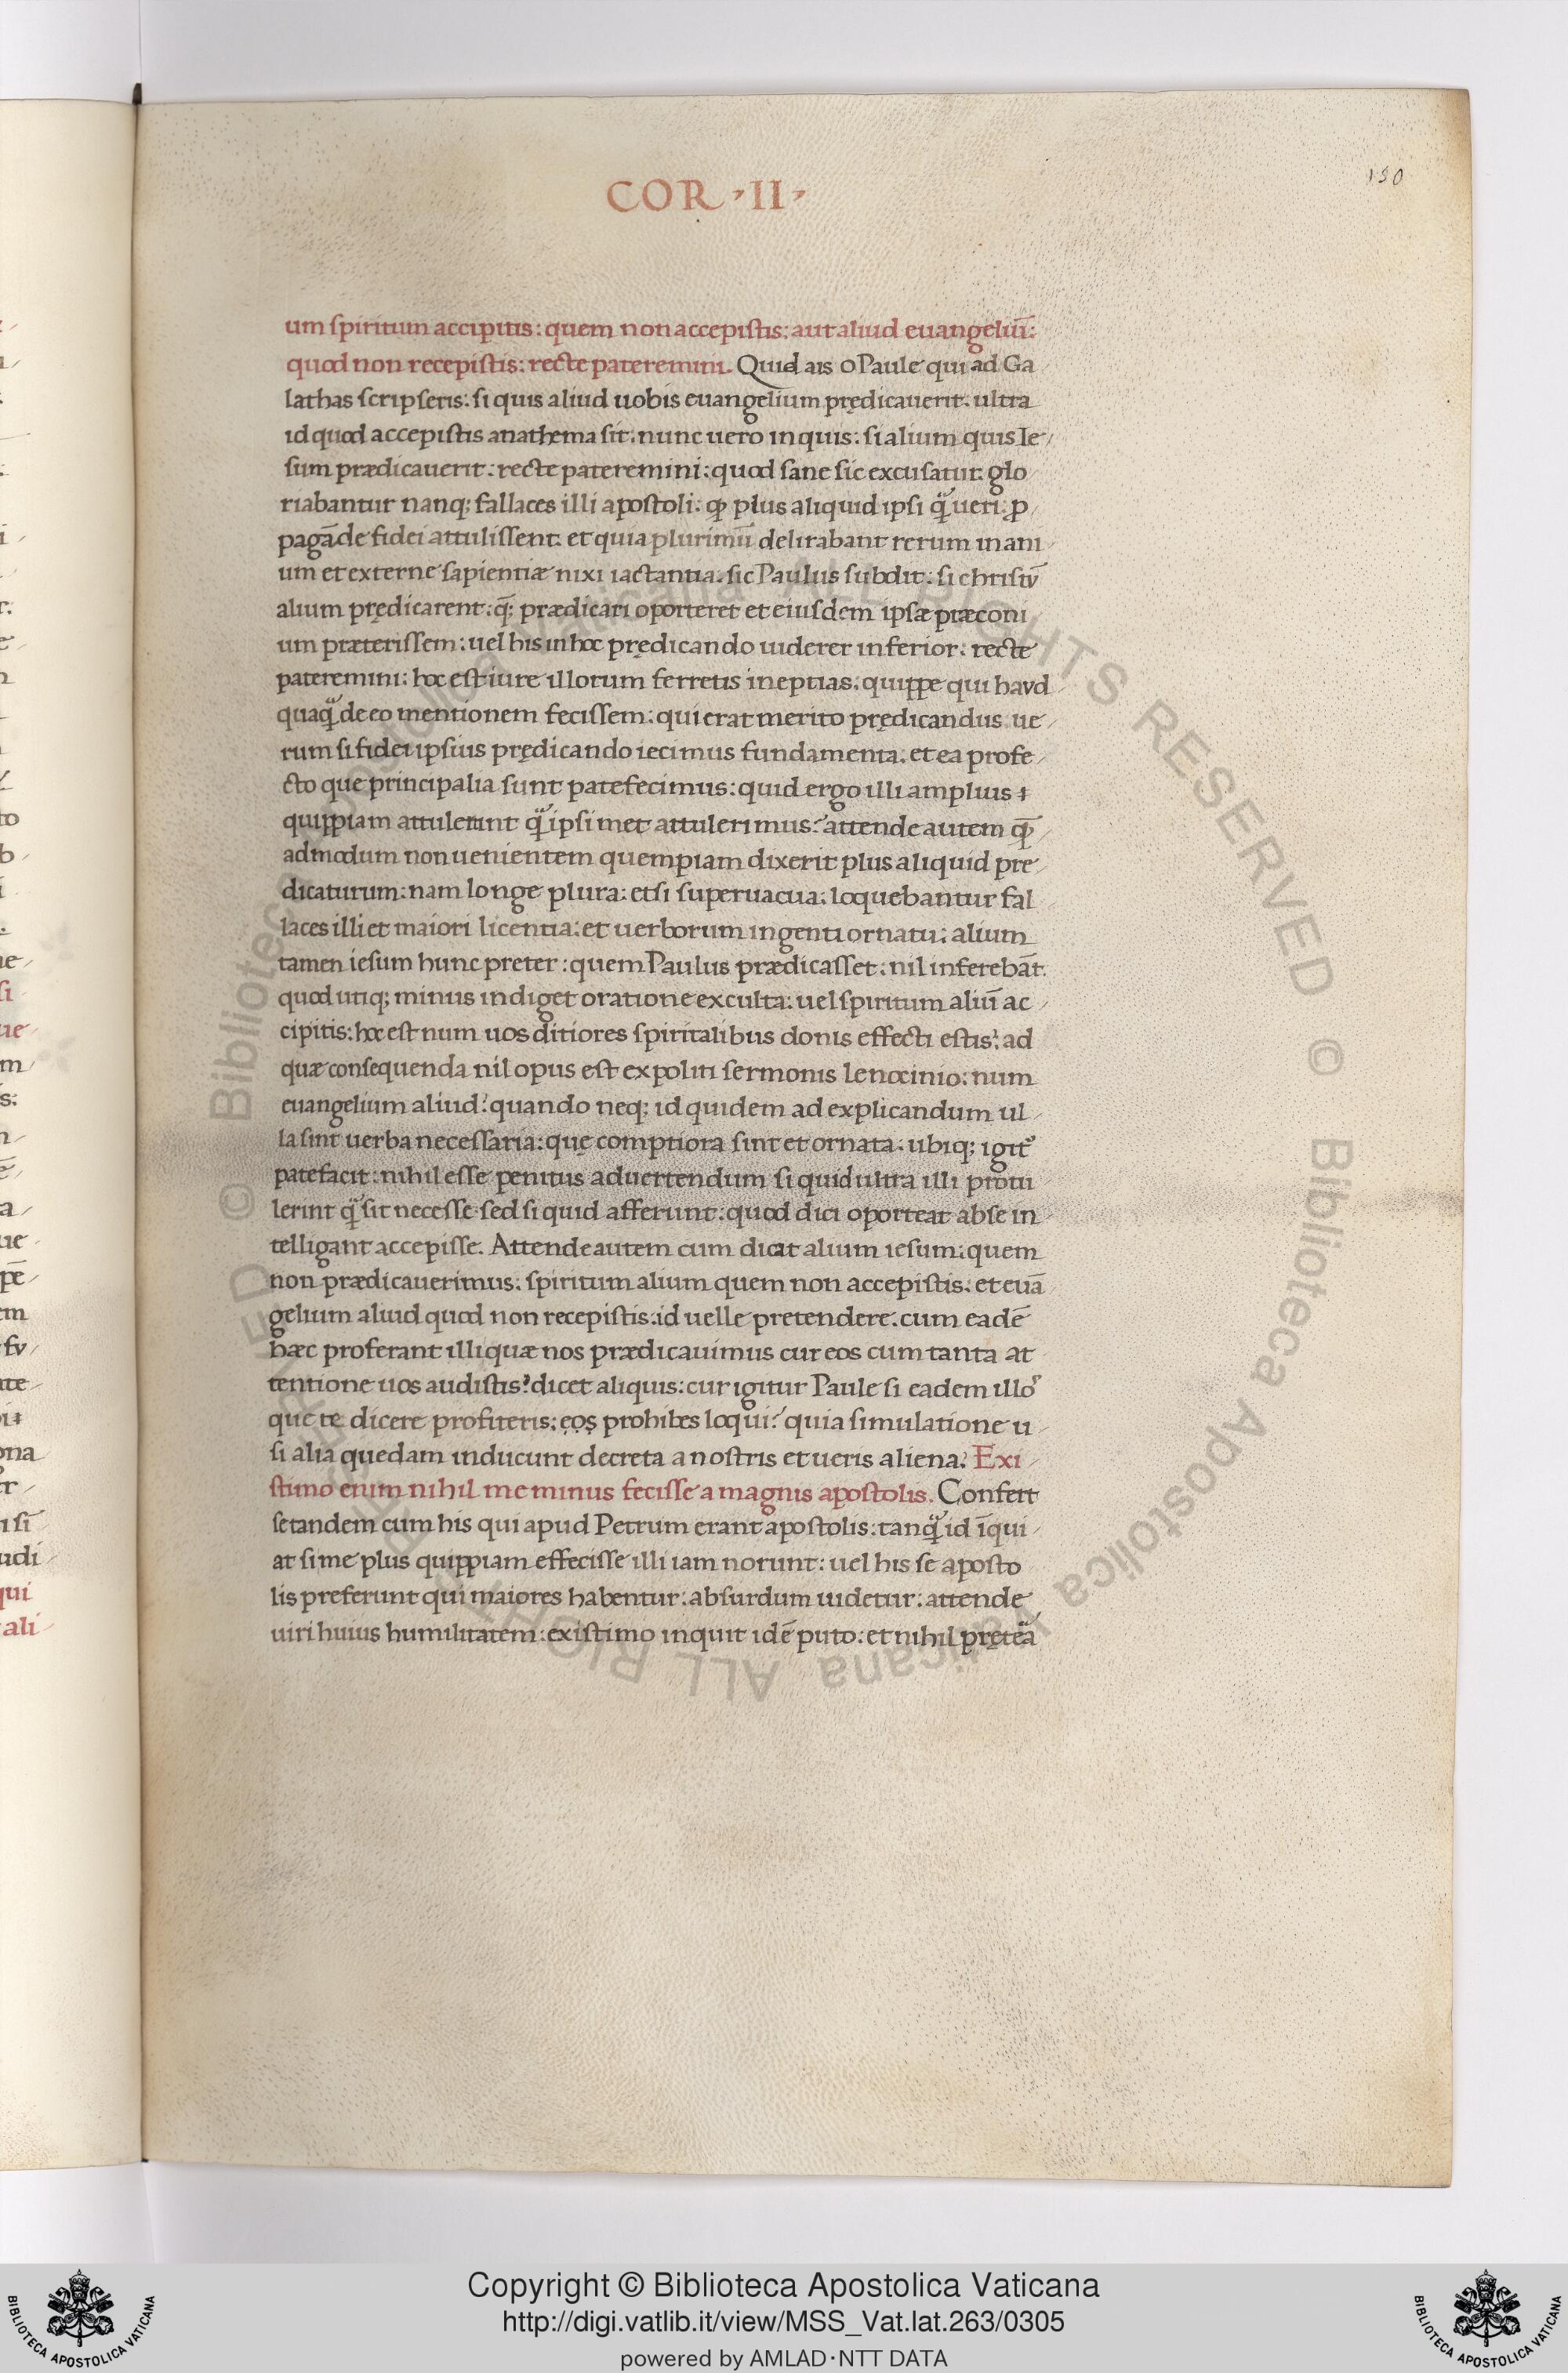 COR · II ·
150
um spiritum accipitis: quem non accepistis: aut aliud euangeliū:
quod non recepistis: recte pateremini. Quid ais o Paule qui ad Ga
lathas scripseris: si quis aliud uobis euangelium prędicauerit: ultra
id quod accepistis anathema sit: nunc uero inquis: si alium quis Ie/
sum prædicauerit: recte pateremini: quod sane sic excusatur: glo/
riabantur nanq; fallaces illi apostoli: ꝙ plus aliquid ipsi q̃ ueri: p/
pagāde fidei attulissent: et quia plurimū delirabant rerum inani/
um et externe sapientiæ nixi iactantia. sic Paulus subdit: si christū
alium prędicarent: q̄; prædicari oporteret et eiusdem ipsæ præconi
um præterissem: uel his in hoc prędicando uiderer inferior: recte
pateremini: hoc est iure illorum ferretis ineptias: quippe qui haud
quaq̃ de eo mentionem fecissem: qui erat merito prędicandus ue/
rum si fidei ipsius prędicando iecimus fundamenta: et ea profe/
cto que principalia sunt patefecimus: quid ergo illi amplius
quippiam attulerint q̃ ipsi met attulerimus? attende autem quē/
admodum non uenientem quempiam dixerit plus aliquid pre/
dicaturum: nam longe plura: etsi superuacua: loquebantur fal
laces illi et maiori licentia: et uerborum ingenti ornatu: alium
tamen iesum hunc preter: quem Paulus prædicasset: nil inferebāt.
quod utiq; minus indiget oratione exculta: uel spiritum aliū ac/
cipitis: hoc est num uos ditiores spiritalibus donis effecti estis? ad
quæ consequenda nil opus est expoliti sermonis lenocinio: num
euangelium aliud? quando neq; id quidem ad explicandum ul/
la sint uerba necessaria: quę comptiora sint et ornata. ubiq; igit᷒
patefacit: nihil esse penitus aduertendum si quid ultra illi protu
lerint q̃ sit necesse sed si quid afferunt: quod dici oporteat ab se in/
telligant accepisse. Attende autem cum dicat alium iesum: quem
non prædicauerimus: spiritum alium quem non accepistis: et euā/
gelium aliud quod non recepistis: id uelle pretendere. cum eadē
hæc proferant illi quæ nos prædicauimus cur eos cum tanta at/
tentione uos audistis? dicet aliquis: cur igitur Paule si eadem illo᷒
que te dicere profiteris: ẹọṣ prohibes loqui? quia simulatione u/
si alia quedam inducunt decreta a nostris et ueris aliena. Exi/
stimo enim nihil me minus fecisse a magnis apostolis. Confert
se tandem cum his qui apud Petrum erant apostolis: tanq̃ id īqui/
at si me plus quippiam effecisse illi iam norunt: uel his se aposto
lis preferunt qui maiores habentur: absurdum uidetur: attende
uiri huius humilitatem: existimo inquit idē puto: et nihil prętęa
Copyright © Biblioteca Apostolica Vaticana
http://digi.vatlib.it/view/MSS_Vat.lat.263/0305
powered by AMLAD·NTT DATA